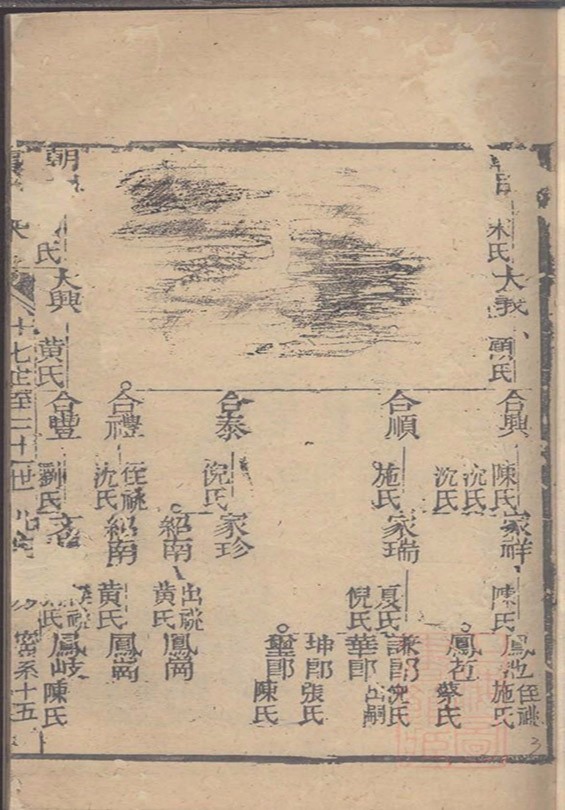 朱氏
大
氏
合興
陳氏
沈氏
沈氏
家祥
陳氏
鳳
侄祧
施氏
鳳苞
蔡氏
合順
施氏
家瑞
夏氏
倪氏
謙郎
沈氏
華郎
出嗣
坤郎
張氏
聖郎
陳氏
合泰
倪氏
家珍
紹南
出祧
黄氏
鳳崗
合禮
侄祧
沈氏
紹南
黄氏
鳳崗
朝
氏
大興
黄氏
合豐
劉氏
氏
鳳岐
陳氏
十七世至二十一世
系十五